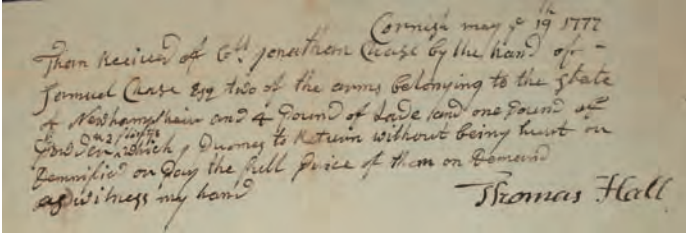 Cornish may ye 19th 1777
Then Receved of Gll Jonathan Chase by the hand of
Samuel Chase Esq two of the arms belonging to the State
of Newhampsheir and 4 pound of Lade and one pound of
powder and 2 flints which I Promes to Return without being hurt or
Demnified or pay the full price of them on Demand
as witness my hand
Thomas Hall